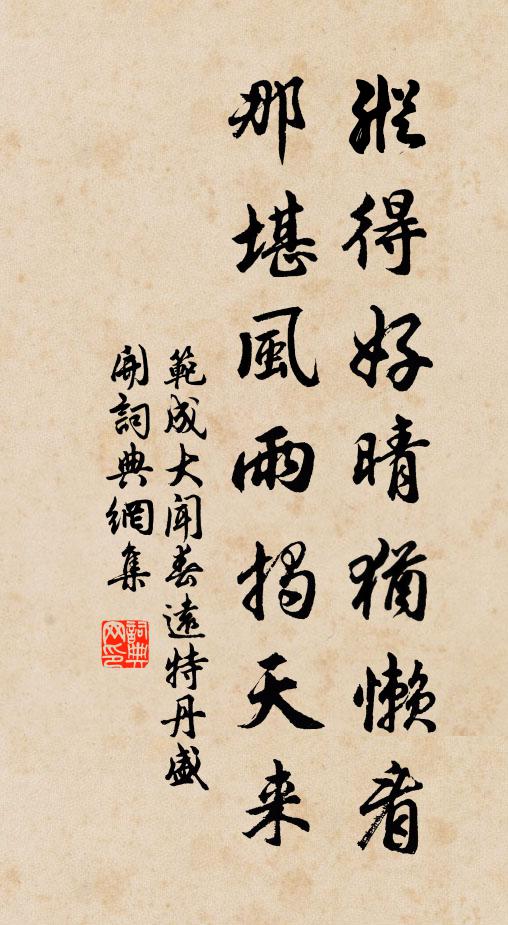 縱得好晴猶懶看
那堪風雨揭天来
範成大聞春遠特丹盛
開詞典網集
詞典網印